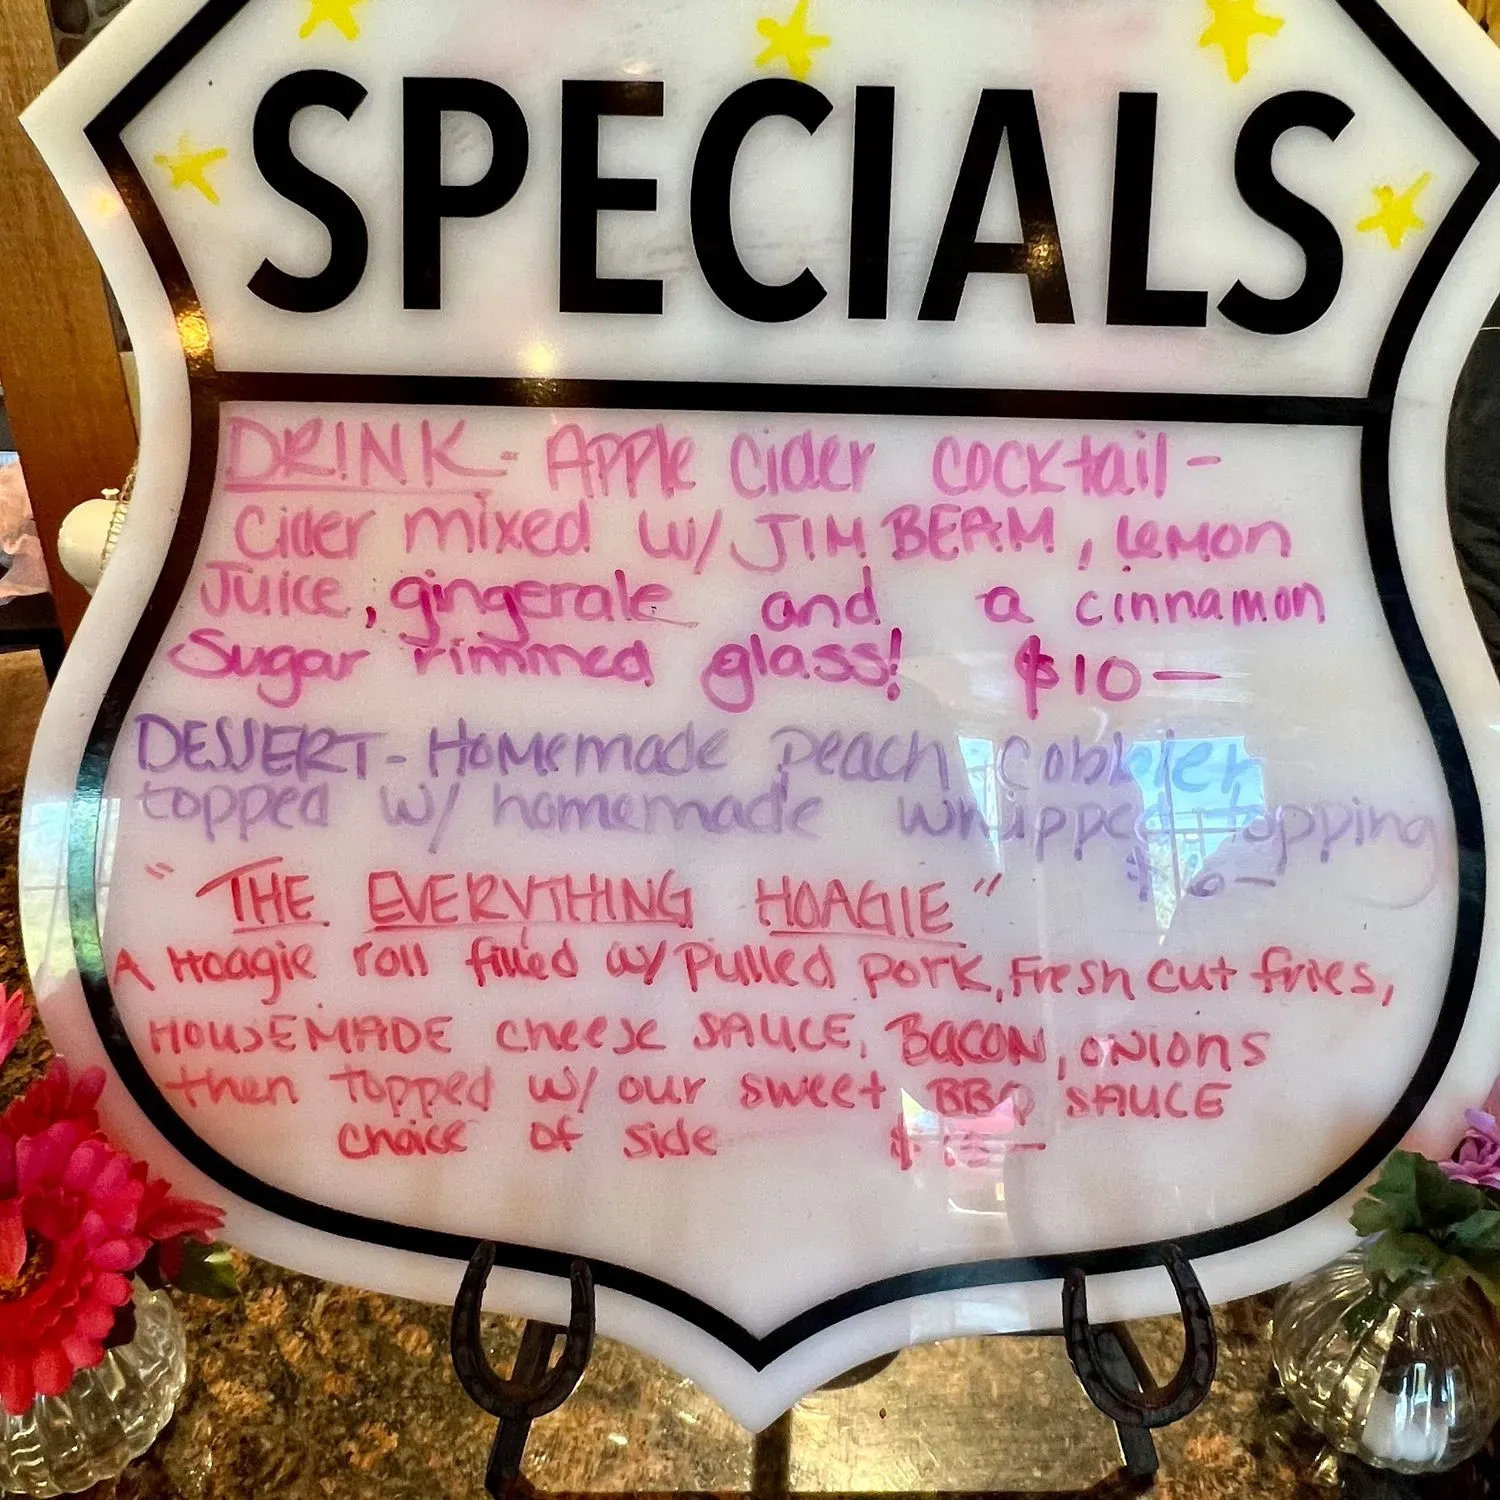 SPECIALS
DRINK - Apple Cider cocktail -
Cider mixed w/ JIM BEAM, lemon
Juice, gingerale and a cinnamon
Sugar rimmed glass! $10 —
DESSERT - Homemade peach cobbler
topped w/ homemade whipped topping
$6 —
"THE EVERYTHING HOAGIE"
A Hoagie roll filled w/ Pulled pork, Fresh cut fries,
HOUSEMADE cheese SAUCE, BACON, onions
then topped w/ our sweet BBQ SAUCE
choice of side $